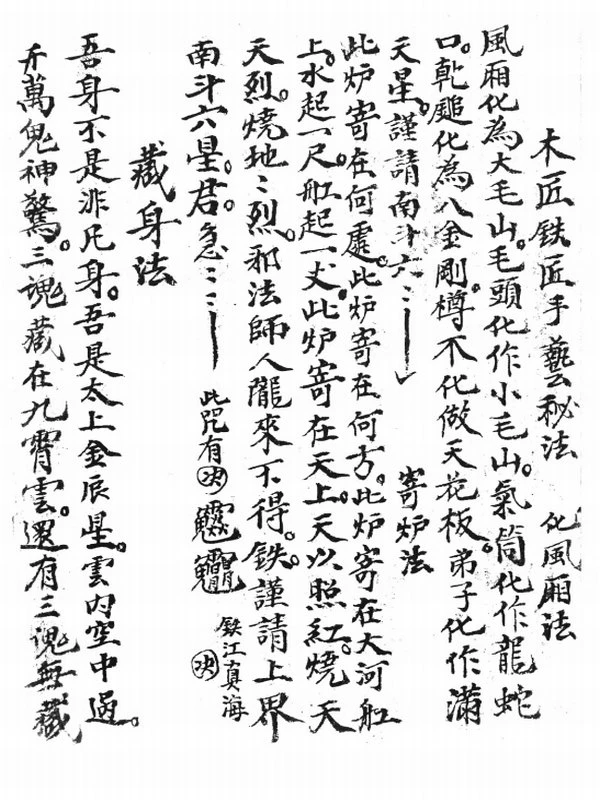 木匠鉄匠手藝秘法 化風廂法
風廂化為大毛山。毛頭化作小毛山。氣筒化作龍蛇
口。乾鎚化為八金剛。樽不化做天花板。弟子化作滿
天星。謹請南斗六〻 寄炉法
此炉寄在何處。此炉寄在何方。此炉寄在大河舡
上。水起一尺。舡起一丈。此炉寄在天上。天以照紅。燒天
天烈。燒地〻烈。邪法師人隴來不得。鉄謹請上界
南斗六星。君。急〻〻 此咒有決 鉄江真海 決
藏身法
吾身不是非凡身。吾是太上金辰星。雲内空中過。
千萬鬼神驚。三魂藏在九霄雲。還有三魂無藏